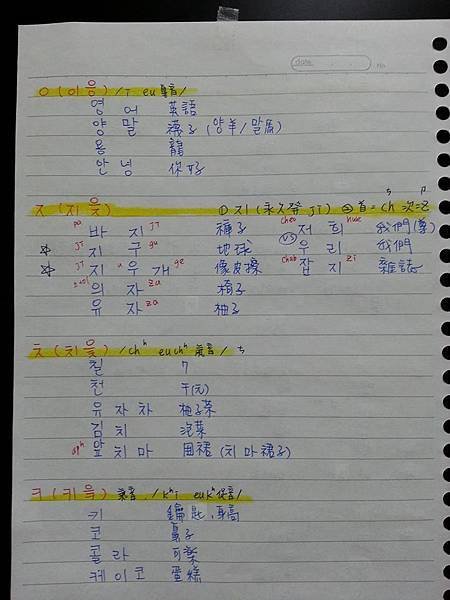 date . . No
ㅇ(이응) / i eu 鼻音/
영어 英語
양말 襪子 (양羊/말馬)
용 龍
안녕 你好
ㅈ(지읒) ①지 (永久發 ji) ②首=ch 次=z
ㄘ ㄗ
pa 바지 ji 褲子 cheo 저희 hwe 我們(尊)
☆ ji 지구 gu 地球 VS 우리 我們
☆ ji 지우개 u ge 橡皮擦 chab 잡지 zi 雜誌
의자 za 椅子
유자 za 柚子
ㅊ(치읓) /chʰ euchʰ 氣音/ ㄘ
칠 7
천 千(元)
유자차 柚子茶
김치 泡菜
apʰ 앞치마 圍裙 (치마裙子)
ㅋ(키읔) 氣音 /kʰi eukʰ
키 鑰匙,身高
코 鼻子
콜라 可樂
케이코 蛋糕